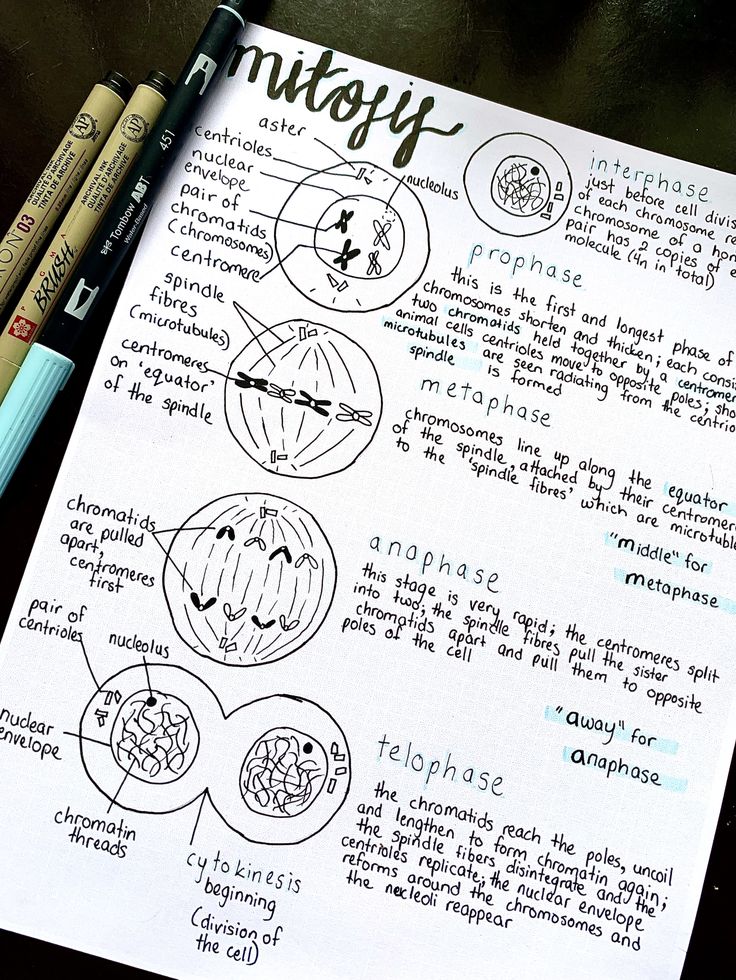 mitosis
aster
centrioles
nuclear
envelope
pair of
chromatids
(chromosomes)
centromere
nucleolus
interphase
just before cell divis
of each chromosome re
chromosome of a hom
pair has 2 copies of e
molecule (4n in total)
prophase
this is the first and longest phase of
chromosomes shorten and thicken; each consis
two chromatids held together by a centromer
animal cells centrioles move to opposite poles; sho
microtubules are seen radiating from the centrio
spindle is formed
spindle
fibres
(microtubules)
centromeres
on 'equator'
of the spindle
metaphase
chromosomes line up along the equator
of the spindle, attached by their centromere
to the 'spindle fibres' which are microtubule
"middle" for
metaphase
chromatids
are pulled
apart,
centromeres
first
anaphase
this stage is very rapid; the centromeres split
into two; the spindle fibres pull the sister
chromatids apart and pull them to opposite
poles of the cell
"away" for
anaphase
pair of
centrioles
nucleolus
nuclear
envelope
chromatin
threads
cytokinesis
beginning
(division of
the cell)
telophase
the chromatids reach the poles, uncoil
and lengthen to form chromatin again;
the spindle fibers disintegrate and the
centrioles replicate; the nuclear envelope
reforms around the chromosomes and
the nucleoli reappear
RON 03
ARCHIVAL INK
QUALITÉ D'ARCHIVAGE
TINTA DE ARCHIVO
AP
PIGMA
BRUSH
ARCHIVAL INK
QUALITÉ D'ARCHIVAGE
TINTA DE ARCHIVO
AP
Tombow ABT
451